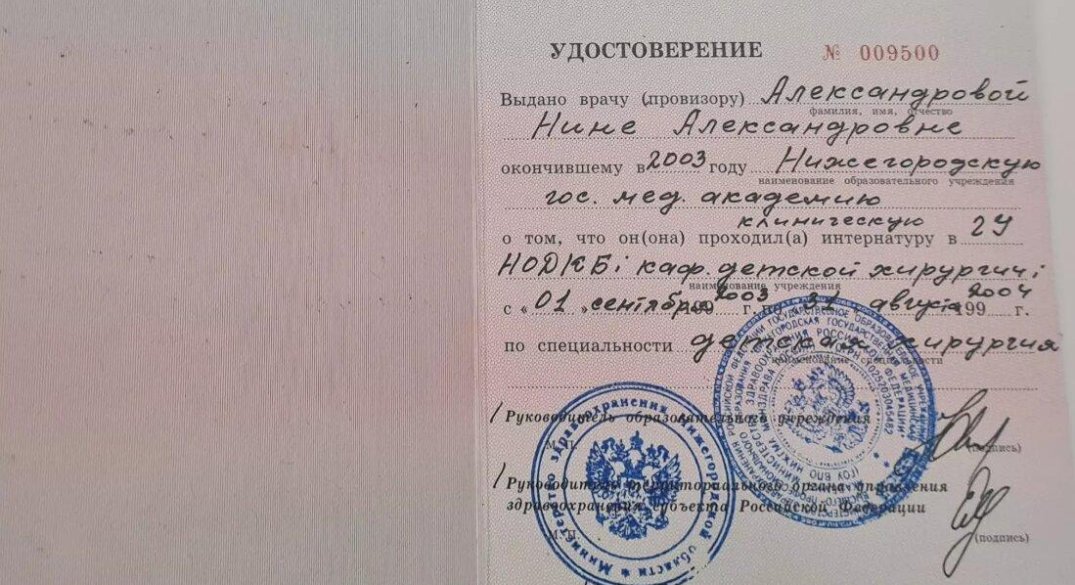 УДОСТОВЕРЕНИЕ № 009500
Выдано врачу (провизору) Александровой
фамилия, имя, отчество
Нине Александровне
окончившему в 2003 году Нижегородскую
наименование образовательного учреждения
гос. мед. академию
клиническую
о том, что он(она) проходил(а) интернатуру в
НОДКБ; каф. детской хирургии;
наименование учреждения
с « 01 » сентября 2003 г. по 31 августа 2004 199 г.
по специальности детская хирургия
наименование специальности
Руководитель образовательного учреждения
М.П.
(подпись)
Руководитель территориального органа управления
здравоохранения субъекта Российской Федерации
М.П.
(подпись)
Министерство здравоохранения Нижегородской области *